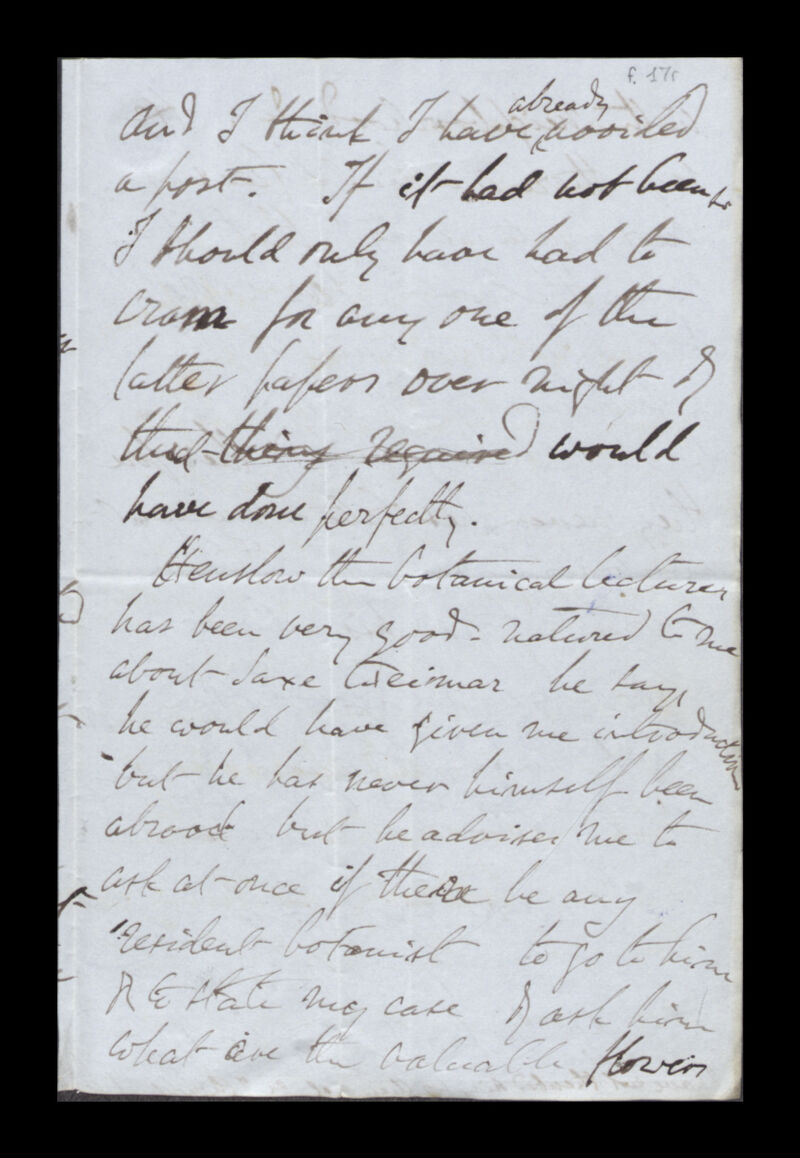 f. 17r
and I think I have already avoided
a post. If it had not been so
I should only have had to
cram for any one of the
latter papers over night &
that thing required would
have done perfectly.
Henslow the botanical lecturer
has been very good-natured to me
about Saxe Weimar he says
he would have given me introduction
but he has never himself been
abroad but he advises me to
ask at once if there be any
resident botanist to go to him
& to state my case & ask him
what are the valuable flowers